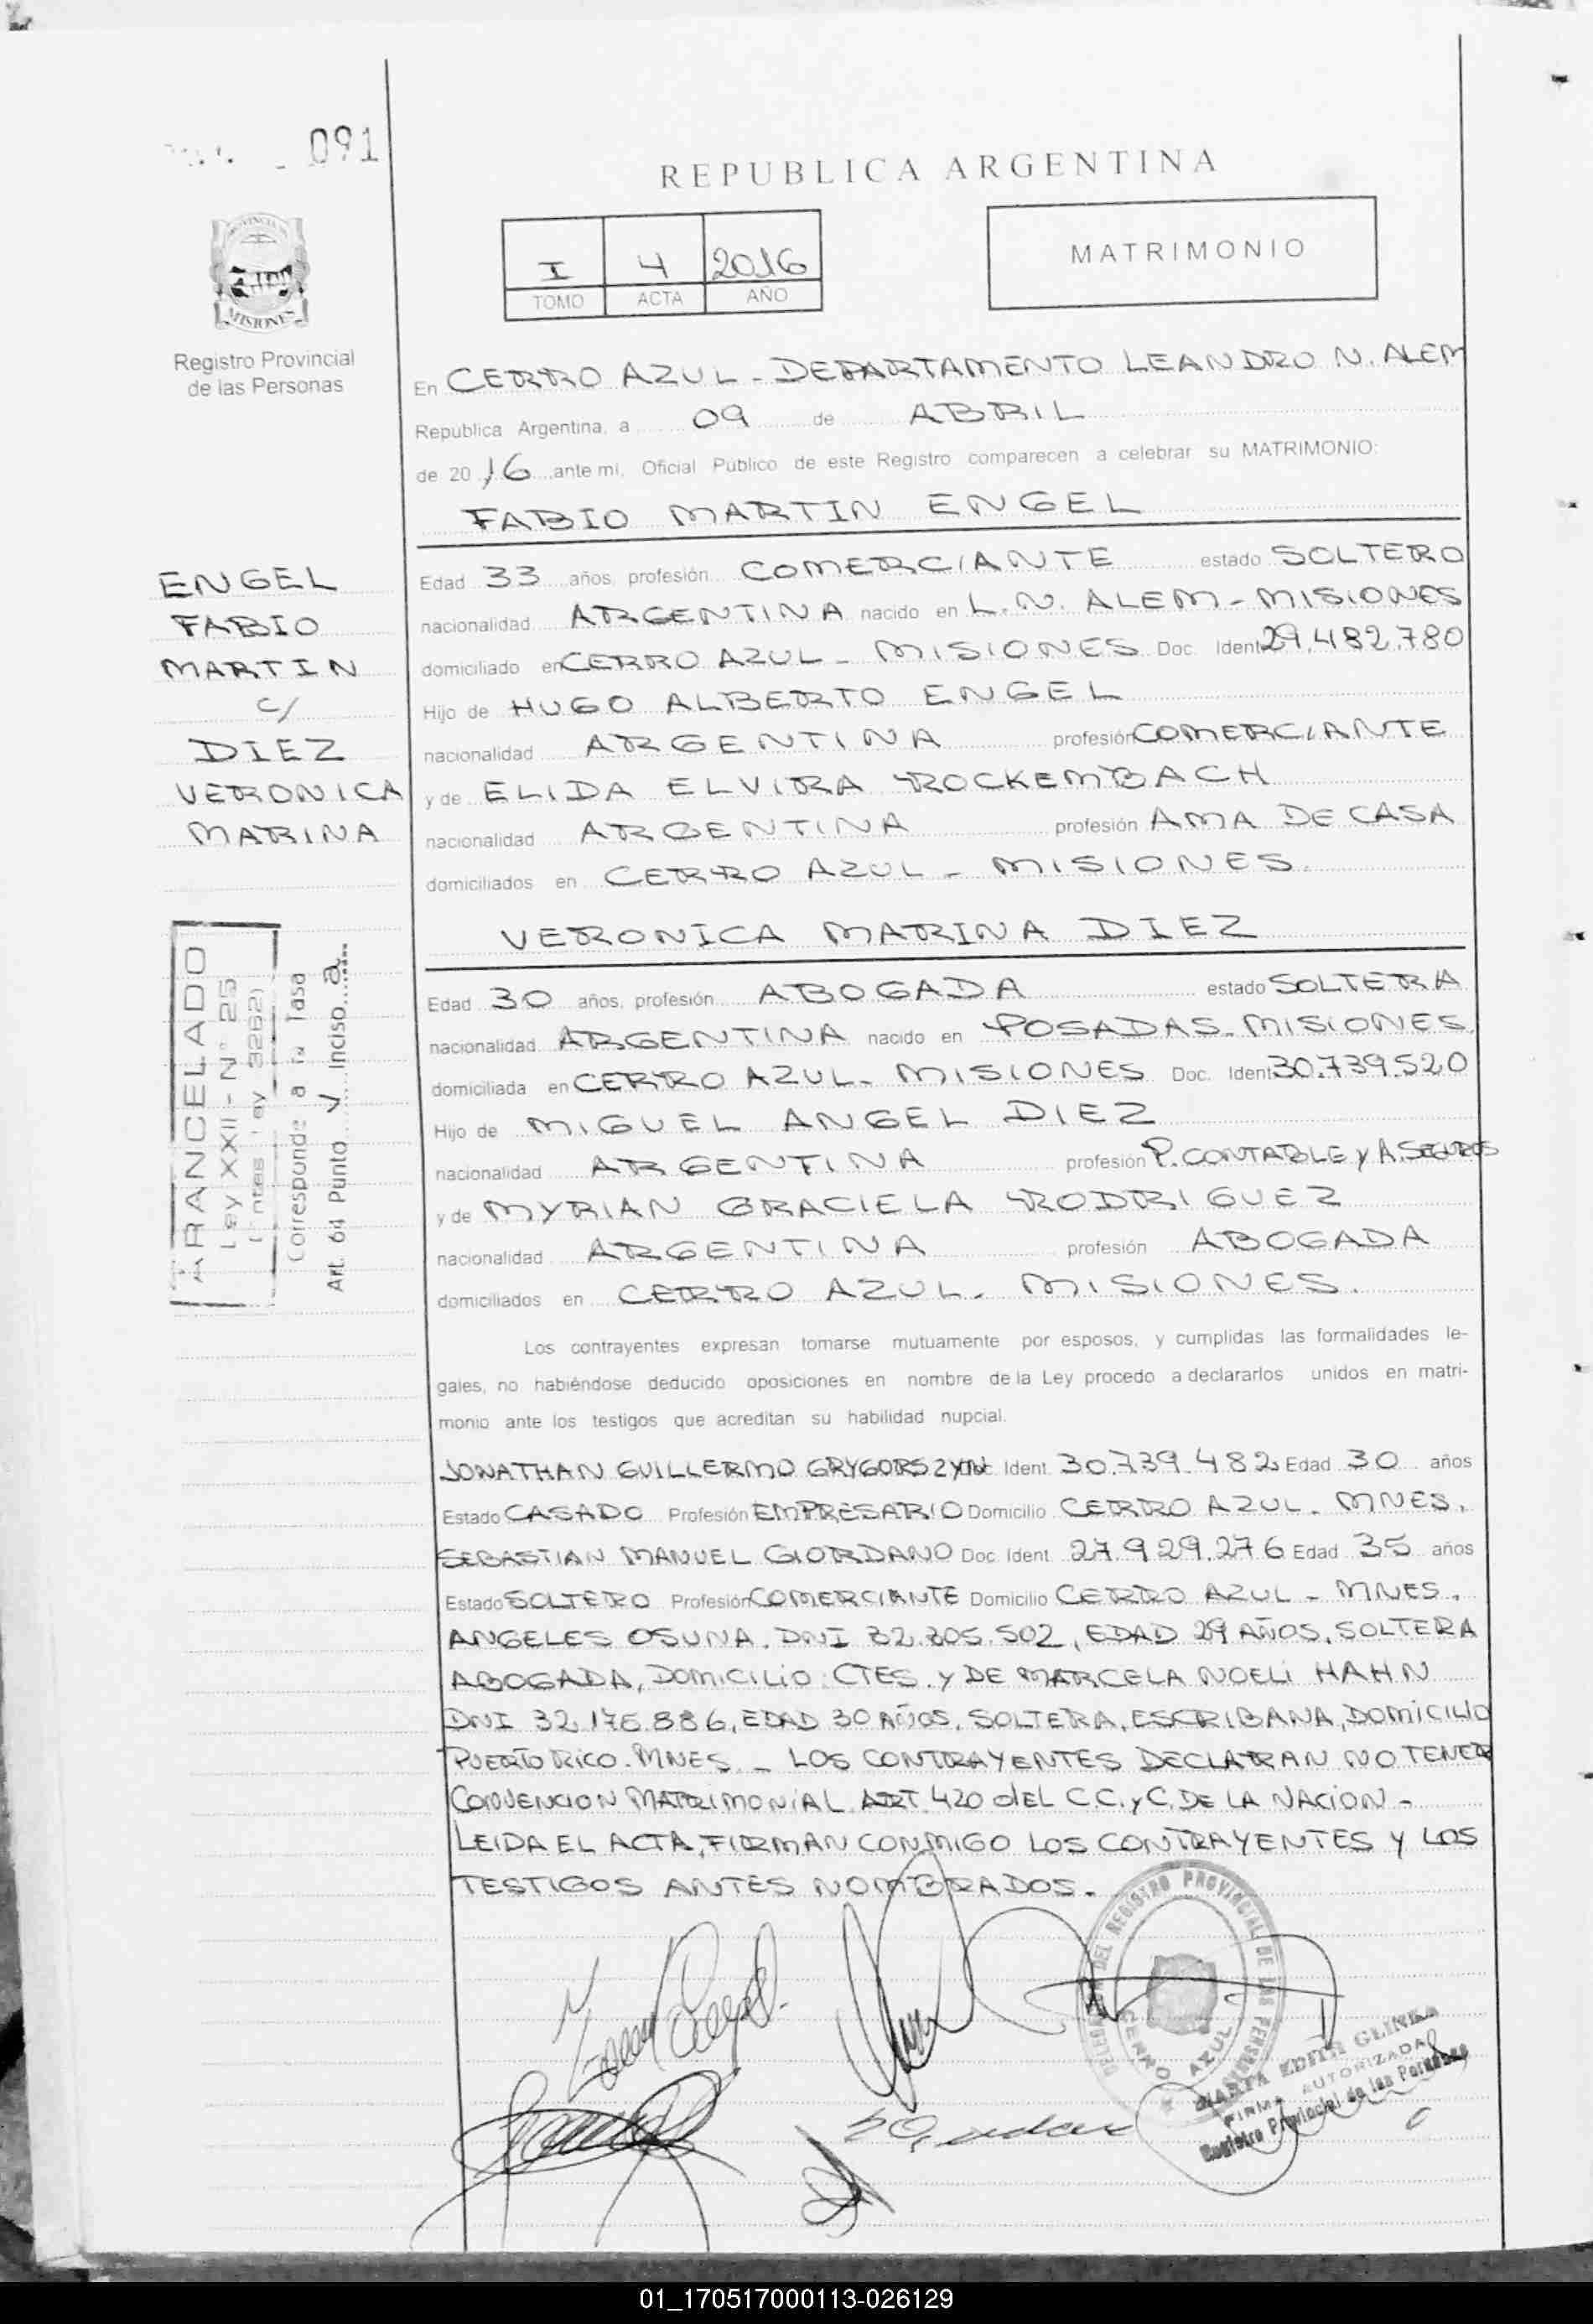 091
REPUBLICA ARGENTINA
PROVINCIA
MISIONES
Registro Provincial
de las Personas
I 4 2016
TOMO ACTA AÑO
MATRIMONIO
En CERRO AZUL - DEPARTAMENTO LEANDRO N. ALEM
República Argentina, a 09 de ABRIL
de 20 16 ante mi, Oficial Público de este Registro comparecen a celebrar su MATRIMONIO:
FABIO MARTIN ENGEL
ENGEL
FABIO
MARTIN
C/
DIEZ
VERONICA
MARINA
Edad 33 años, profesión COMERCIANTE estado SOLTERO
nacionalidad ARGENTINA nacido en L.N. ALEM - MISIONES
domiciliado en CERRO AZUL - MISIONES Doc. Ident 29.482.780
Hijo de HUGO ALBERTO ENGEL
nacionalidad ARGENTINA profesión COMERCIANTE
y de ELIDA ELVIRA ROCKEMBACH
nacionalidad ARGENTINA profesión AMA DE CASA
domiciliados en CERRO AZUL - MISIONES.
VERONICA MARINA DIEZ
ARANCELADO
Ley XXII - N° 25
(Antes Ley 3262)
Corresponde a la Tasa
Art. 64 Punto V Inciso a
Edad 30 años, profesión ABOGADA estado SOLTERA
nacionalidad ARGENTINA nacido en POSADAS - MISIONES
domiciliada en CERRO AZUL - MISIONES Doc. Ident 30.739.520
Hijo de MIGUEL ANGEL DIEZ
nacionalidad ARGENTINA profesión P. CONTABLE y A. SEGUROS
y de MYRIAN GRACIELA RODRIGUEZ
nacionalidad ARGENTINA profesión ABOGADA
domiciliados en CERRO AZUL - MISIONES.
Los contrayentes expresan tomarse mutuamente por esposos, y cumplidas las formalidades le-
gales, no habiéndose deducido oposiciones en nombre de la Ley procedo a declararlos unidos en matri-
monio ante los testigos que acreditan su habilidad nupcial.
JONATHAN GUILLERMO GRYGORSZYN Doc. Ident. 30.739.482 Edad 30 años
Estado CASADO Profesión EMPRESARIO Domicilio CERRO AZUL - MNES.
SEBASTIAN MANUEL GIORDANO Doc. Ident. 27.929.276 Edad 35 años
Estado SOLTERO Profesión COMERCIANTE Domicilio CERRO AZUL - MNES.
ANGELES OSUNA, DNI 32.305.502, EDAD 29 AÑOS, SOLTERA
ABOGADA, DOMICILIO: CTES. Y DE MARCELA NOELI HAHN
DNI 32.176.886, EDAD 30 AÑOS, SOLTERA, ESCRIBANA, DOMICILIO
PUERTO RICO. MNES. - LOS CONTRAYENTES DECLARAN NO TENER
CONVENCION MATRIMONIAL ART. 420 DEL C.C. y C. DE LA NACION -
LEIDA EL ACTA, FIRMAN CONMIGO LOS CONTRAYENTES Y LOS
TESTIGOS ANTES NOMBRADOS.
DEL REGISTRO PROVINCIAL DE LAS PERSONAS
CERRO AZUL
MARTA EDITH GLINKA
FIRMA AUTORIZADA
Registro Provincial de las Personas
01_170517000113-026129